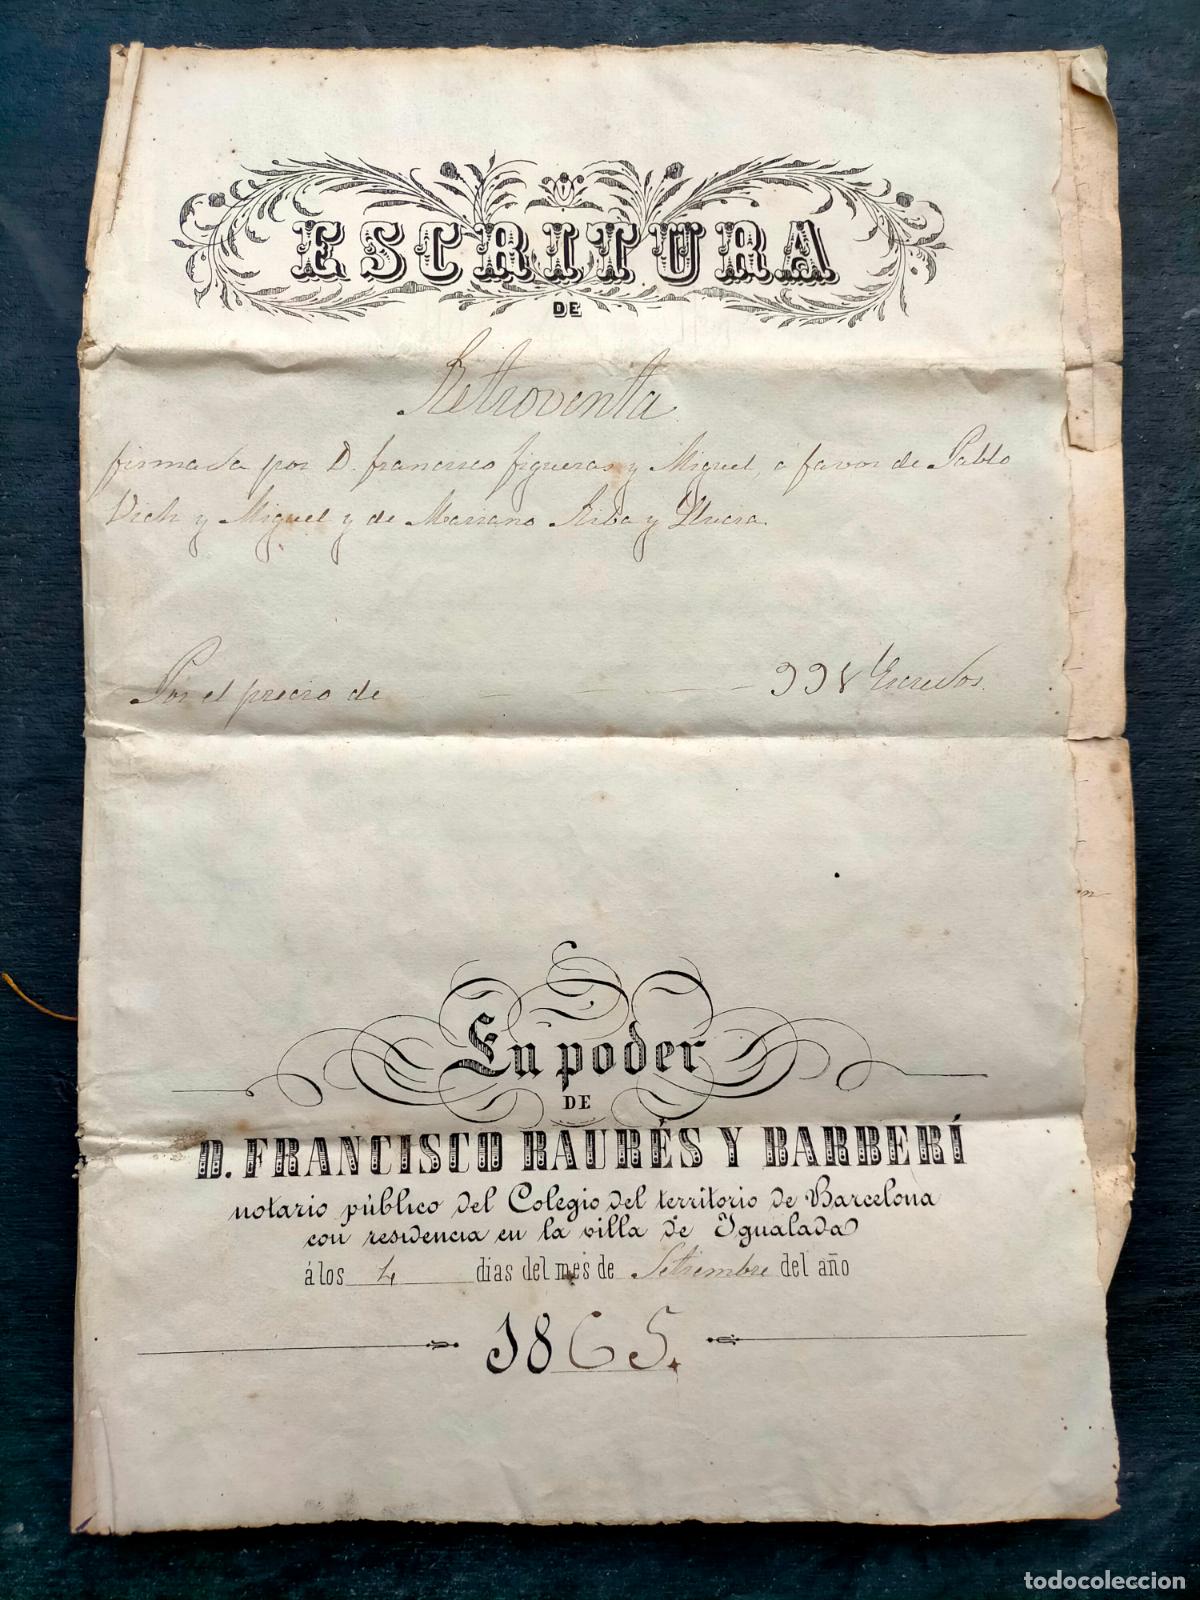 ESCRITURA
DE
Retroventa
firmada por D. francisco figueras y Miquel, a favor de Pablo
Vich y Miquel y de Mariano Riba y Llucia.
Por el precio de 998 Escudos.
En poder
DE
D. FRANCISCO RAURÉS Y BARBERÍ
notario público del Colegio del territorio de Barcelona
con residencia en la villa de Igualada
á los 4 dias del mes de Setiembre del año
1865.
todocoleccion